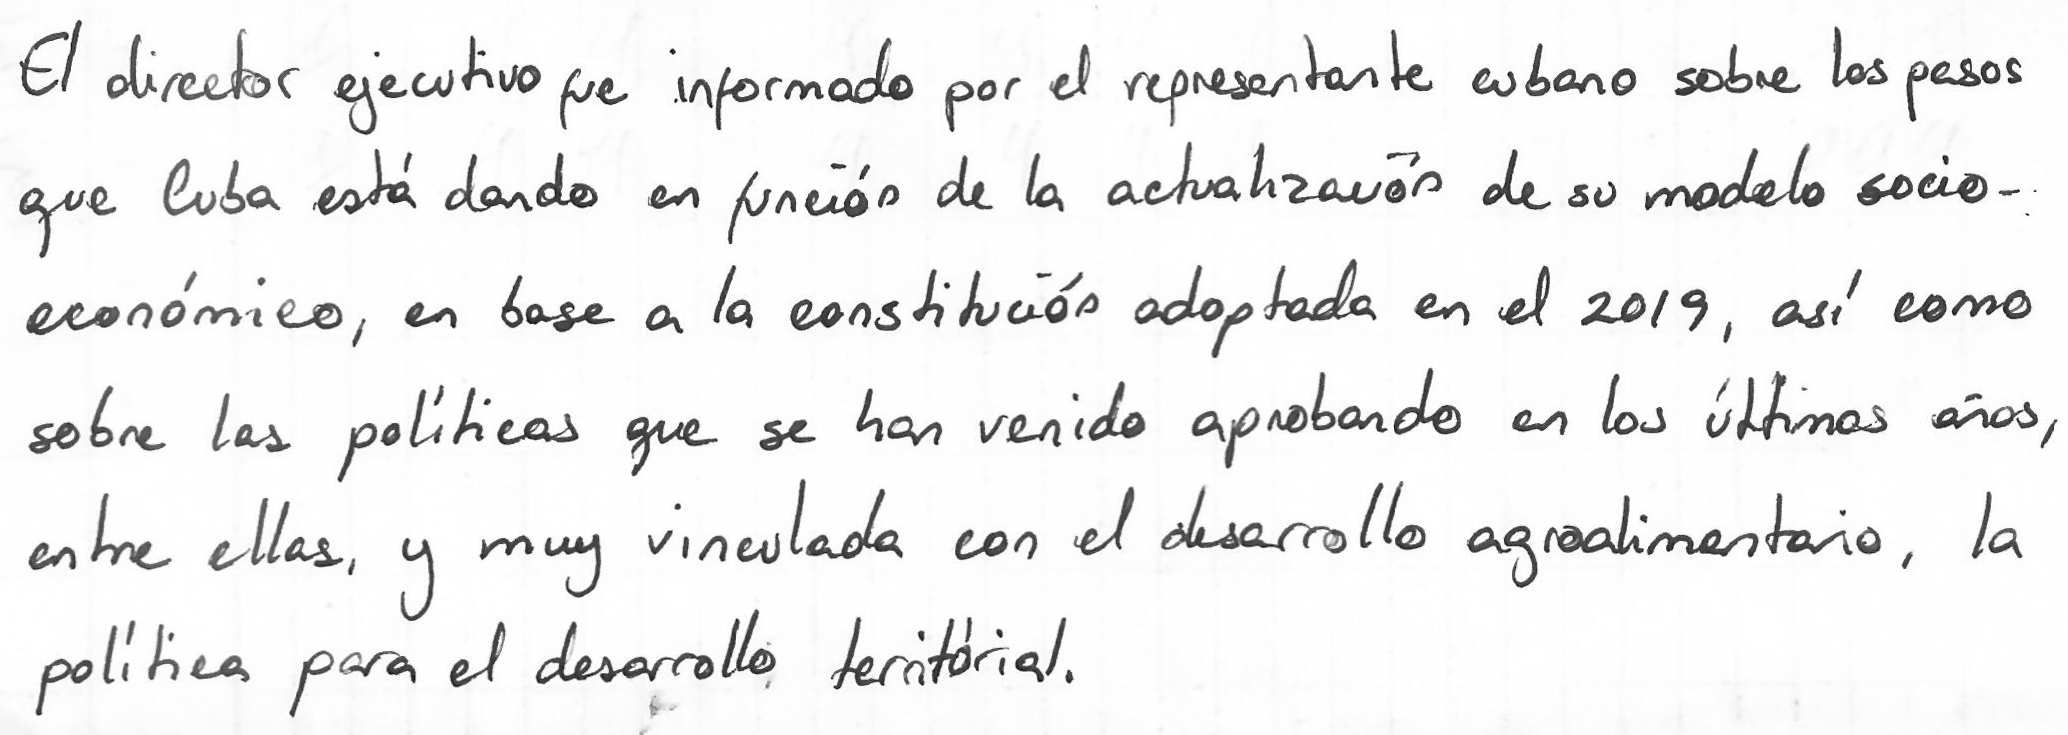 El director ejecutivo fue informado por el representante cubano sobre los pasos
que Cuba está dando en función de la actualización de su modelo socio-
económico, en base a la constitución adoptada en el 2019, así como
sobre las políticas que se han venido aprobando en los últimos años,
entre ellas, y muy vinculada con el desarrollo agroalimentario, la
política para el desarrollo territórial.